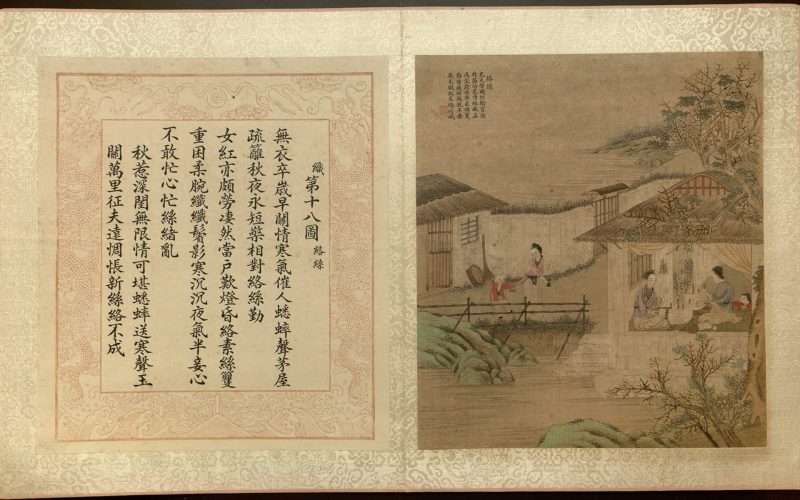 織第十八圖 絡絲
無衣卒歲早關情寒氣催人蟋蟀聲茅屋
疏籬秋夜永短檠相對絡絲勤
女紅亦頗勞淒然當戶歎燈昏絡素絲
重困柔腕纖纖鬢影寒沉沉夜氣半妾心
不敢忙心忙絲緒亂
秋惹深閨無限情可堪蟋蟀送寒聲玉
關萬里征夫遠惆悵新絲絡不成
絡絲